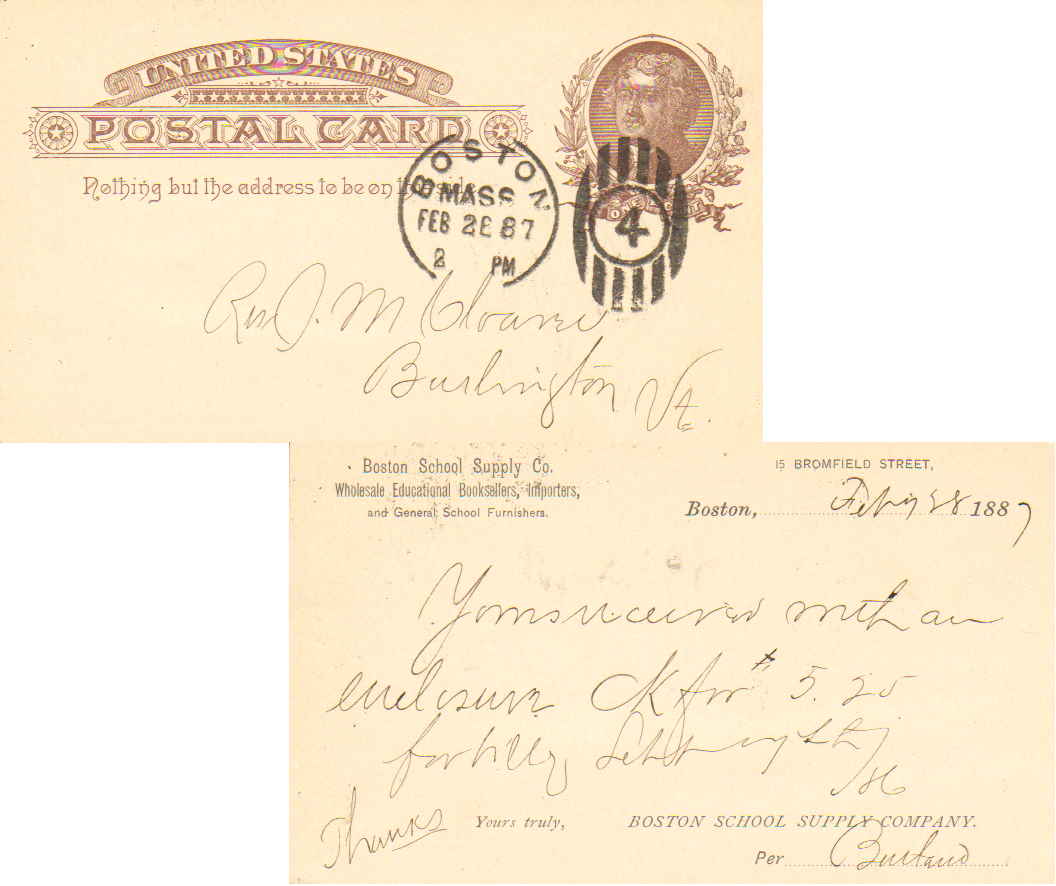 UNITED STATES
POSTAL CARD
Nothing but the address to be on this side
BOSTON
MASS
FEB 28 87
2 PM
4
ONE CENT
Rev J. M
Burlington
Vt.
Boston School Supply Co.
Wholesale Educational Booksellers, Importers,
and General School Furnishers.
15 BROMFIELD STREET,
Boston, Feby 28 1887
Yours received with an
enclosure Ck for # 5.25
for bill
Thanks
Yours truly, BOSTON SCHOOL SUPPLY COMPANY.
Per